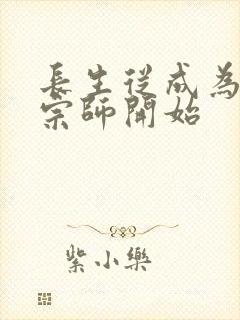 長生從成為
宗師開始
紫小樂